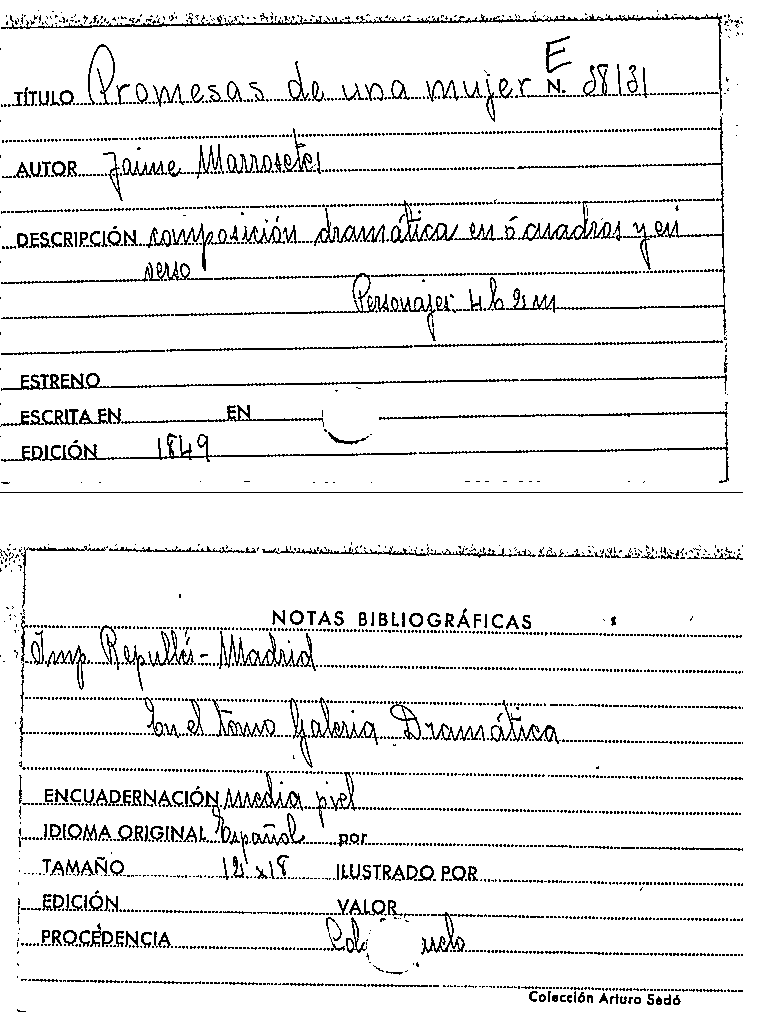 E
TÍTULO Promesas de una mujer N.
AUTOR Jaime Marrosetes
DESCRIPCIÓN composición dramática en 5 cuadros y en
verso
Personajes: 4 h 2 m
ESTRENO
ESCRITA EN EN
EDICIÓN 1849
NOTAS BIBLIOGRÁFICAS
Imp Repullés - Madrid
En el tomo Galeria Dramática
ENCUADERNACIÓN media piel
IDIOMA ORIGINAL Español por
TAMAÑO 12 x 18 ILUSTRADO POR
EDICIÓN VALOR
PROCEDENCIA
Colección Arturo Sedó